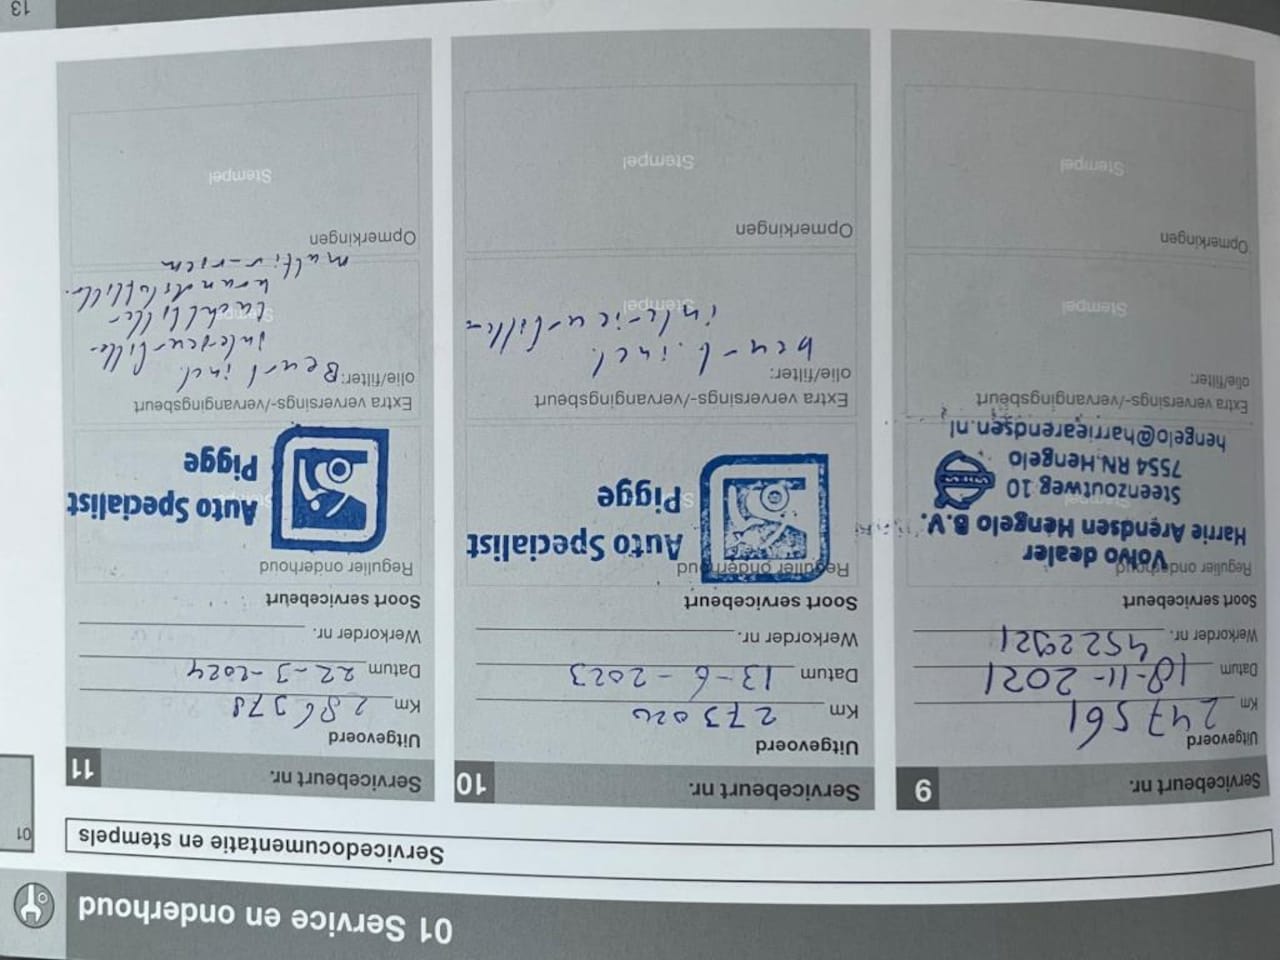 01 Service en onderhoud
01
Servicedocumentatie en stempels
Servicebeurt nr. 9
Uitgevoerd
Km 247561
Datum 18-11-2021
Werkorder nr. 4522921
Soort servicebeurt
Regulier onderhoud
Volvo dealer
Harrie Arendsen Hengelo B.V.
Steenzoutweg 10
7554 RN Hengelo
hengelo@harriearendsen.nl
Extra verversings-/vervangingsbeurt
olie/filter:
Stempel
Opmerkingen
Stempel
Servicebeurt nr. 10
Uitgevoerd
Km 273020
Datum 13-6-2023
Werkorder nr.
Soort servicebeurt
Regulier onderhoud
Auto Specialist
Pigge
Extra verversings-/vervangingsbeurt
olie/filter:
beurt incl
interieurfilter
Stempel
Opmerkingen
Stempel
Servicebeurt nr. 11
Uitgevoerd
Km 286978
Datum 22-3-2024
Werkorder nr.
Soort servicebeurt
Regulier onderhoud
Auto Specialist
Pigge
Extra verversings-/vervangingsbeurt
olie/filter: Beurt incl.
interieurfilter
luchtfilter
brandstoffilter
multiriem
Opmerkingen
Stempel
13